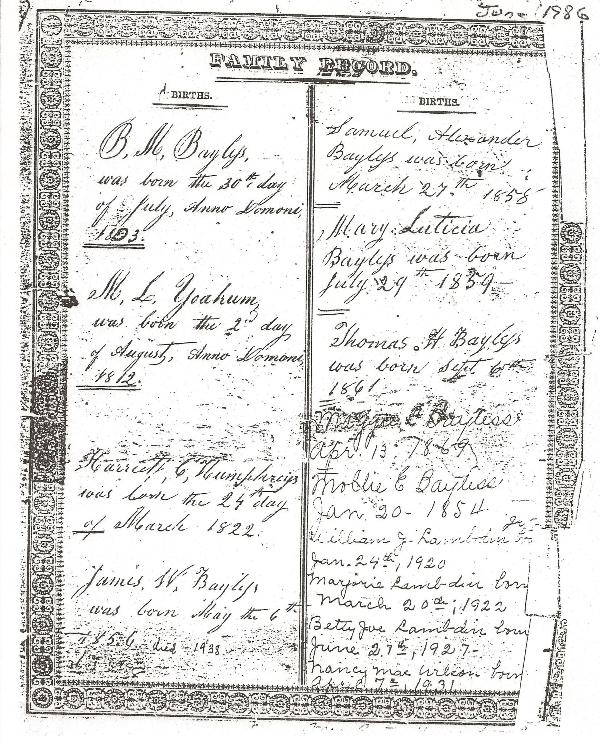 June 1986
FAMILY RECORD.
BIRTHS.
B. M. Baylys,
was born the 30th day
of July, Anno Domoni,
1803.
M. L. Yoahum,
was born the 2nd day
of August, Anno Domoni,
1812.
Harriett, C, Humphreys
was born the 24th day
of March 1822.
James, W, Baylys
was born May the 6th
1856 died 1938
BIRTHS.
Samuel, Alexander
Baylys was born
March 27th 1858
Mary Luticia
Baylys was born
July 29th 1859
Thomas. H. Baylys
was born Sept 6th
1861
Bayless
Apr. 13. 1869
Mollie E Bayless
Jan 20 - 1854
William J. Lambdin Jr
Jan. 24th, 1920
Marjorie Lambdin born
March 20th, 1922
Betty Joe Lambdin born
June 27th, 1927
Nancy Mae Wilson born
7th 1931